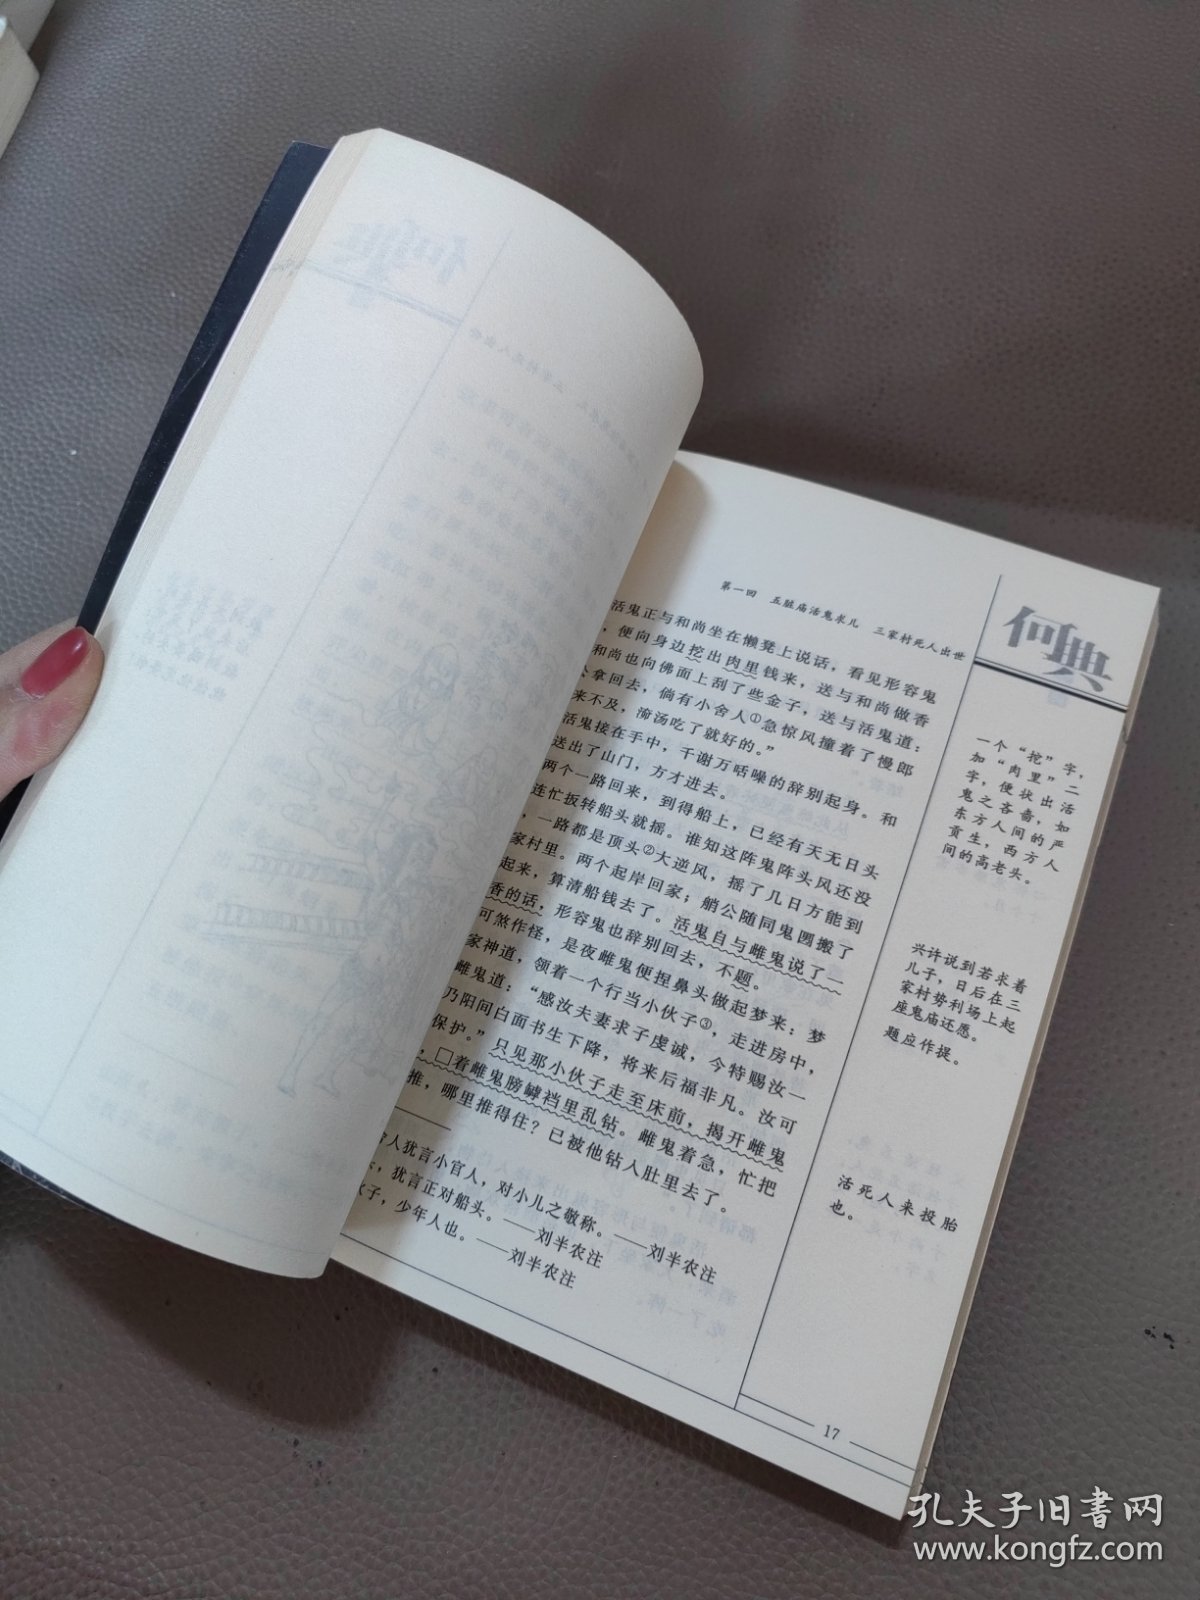 第一回 五脏庙活鬼求儿 三家村死人出世
何典
活鬼正与和尚坐在懒凳上说话，看见形容鬼
，便向身边挖出肉里钱来，送与和尚做香
和尚也向佛面上刮了些金子，送与活鬼道：
拿回去，倘有小舍人①急惊风撞着了慢郎
来不及，渧汤吃了就好的。”
活鬼接在手中，千谢万咶噪的辞别起身。和
送出了山门，方才进去。
两个一路回来，到得船上，已经有天无日头
连忙扳转船头就摇。谁知这阵鬼阵头风还没
，一路都是顶头②大逆风，摇了几日方能到
家村里。两个起岸回家；艄公随同鬼囝搬了
起来，算清船钱去了。活鬼自与雌鬼说了一
香的话，形容鬼也辞别回去，不题。
可煞作怪，是夜雌鬼便捏鼻头做起梦来：梦
家神道，领着一个行当小伙子③，走进房中，
雌鬼道：“感汝夫妻求子虔诚，今特赐汝一
乃阳间白面书生下降，将来后福非凡。汝可
保护。”只见那小伙子走至床前，揭开雌鬼
，□着雌鬼膀罅裆里乱钻。雌鬼着急，忙把
推，哪里推得住？已被他钻入肚里去了。
人犹言小官人，对小儿之敬称。——刘半农注
，犹言正对船头。——刘半农注
子，少年人也。——刘半农注
一个“挖”字，
加“肉里”二
字，便状出活
鬼之吝啬，如
东方人间的严
贡生，西方人
间的高老头。
兴许说到若求着
儿子，日后在三
家村势利场上起
座鬼庙还愿。
题应作提。
活死人来投胎
也。
17
孔夫子旧书网
www.kongfz.com